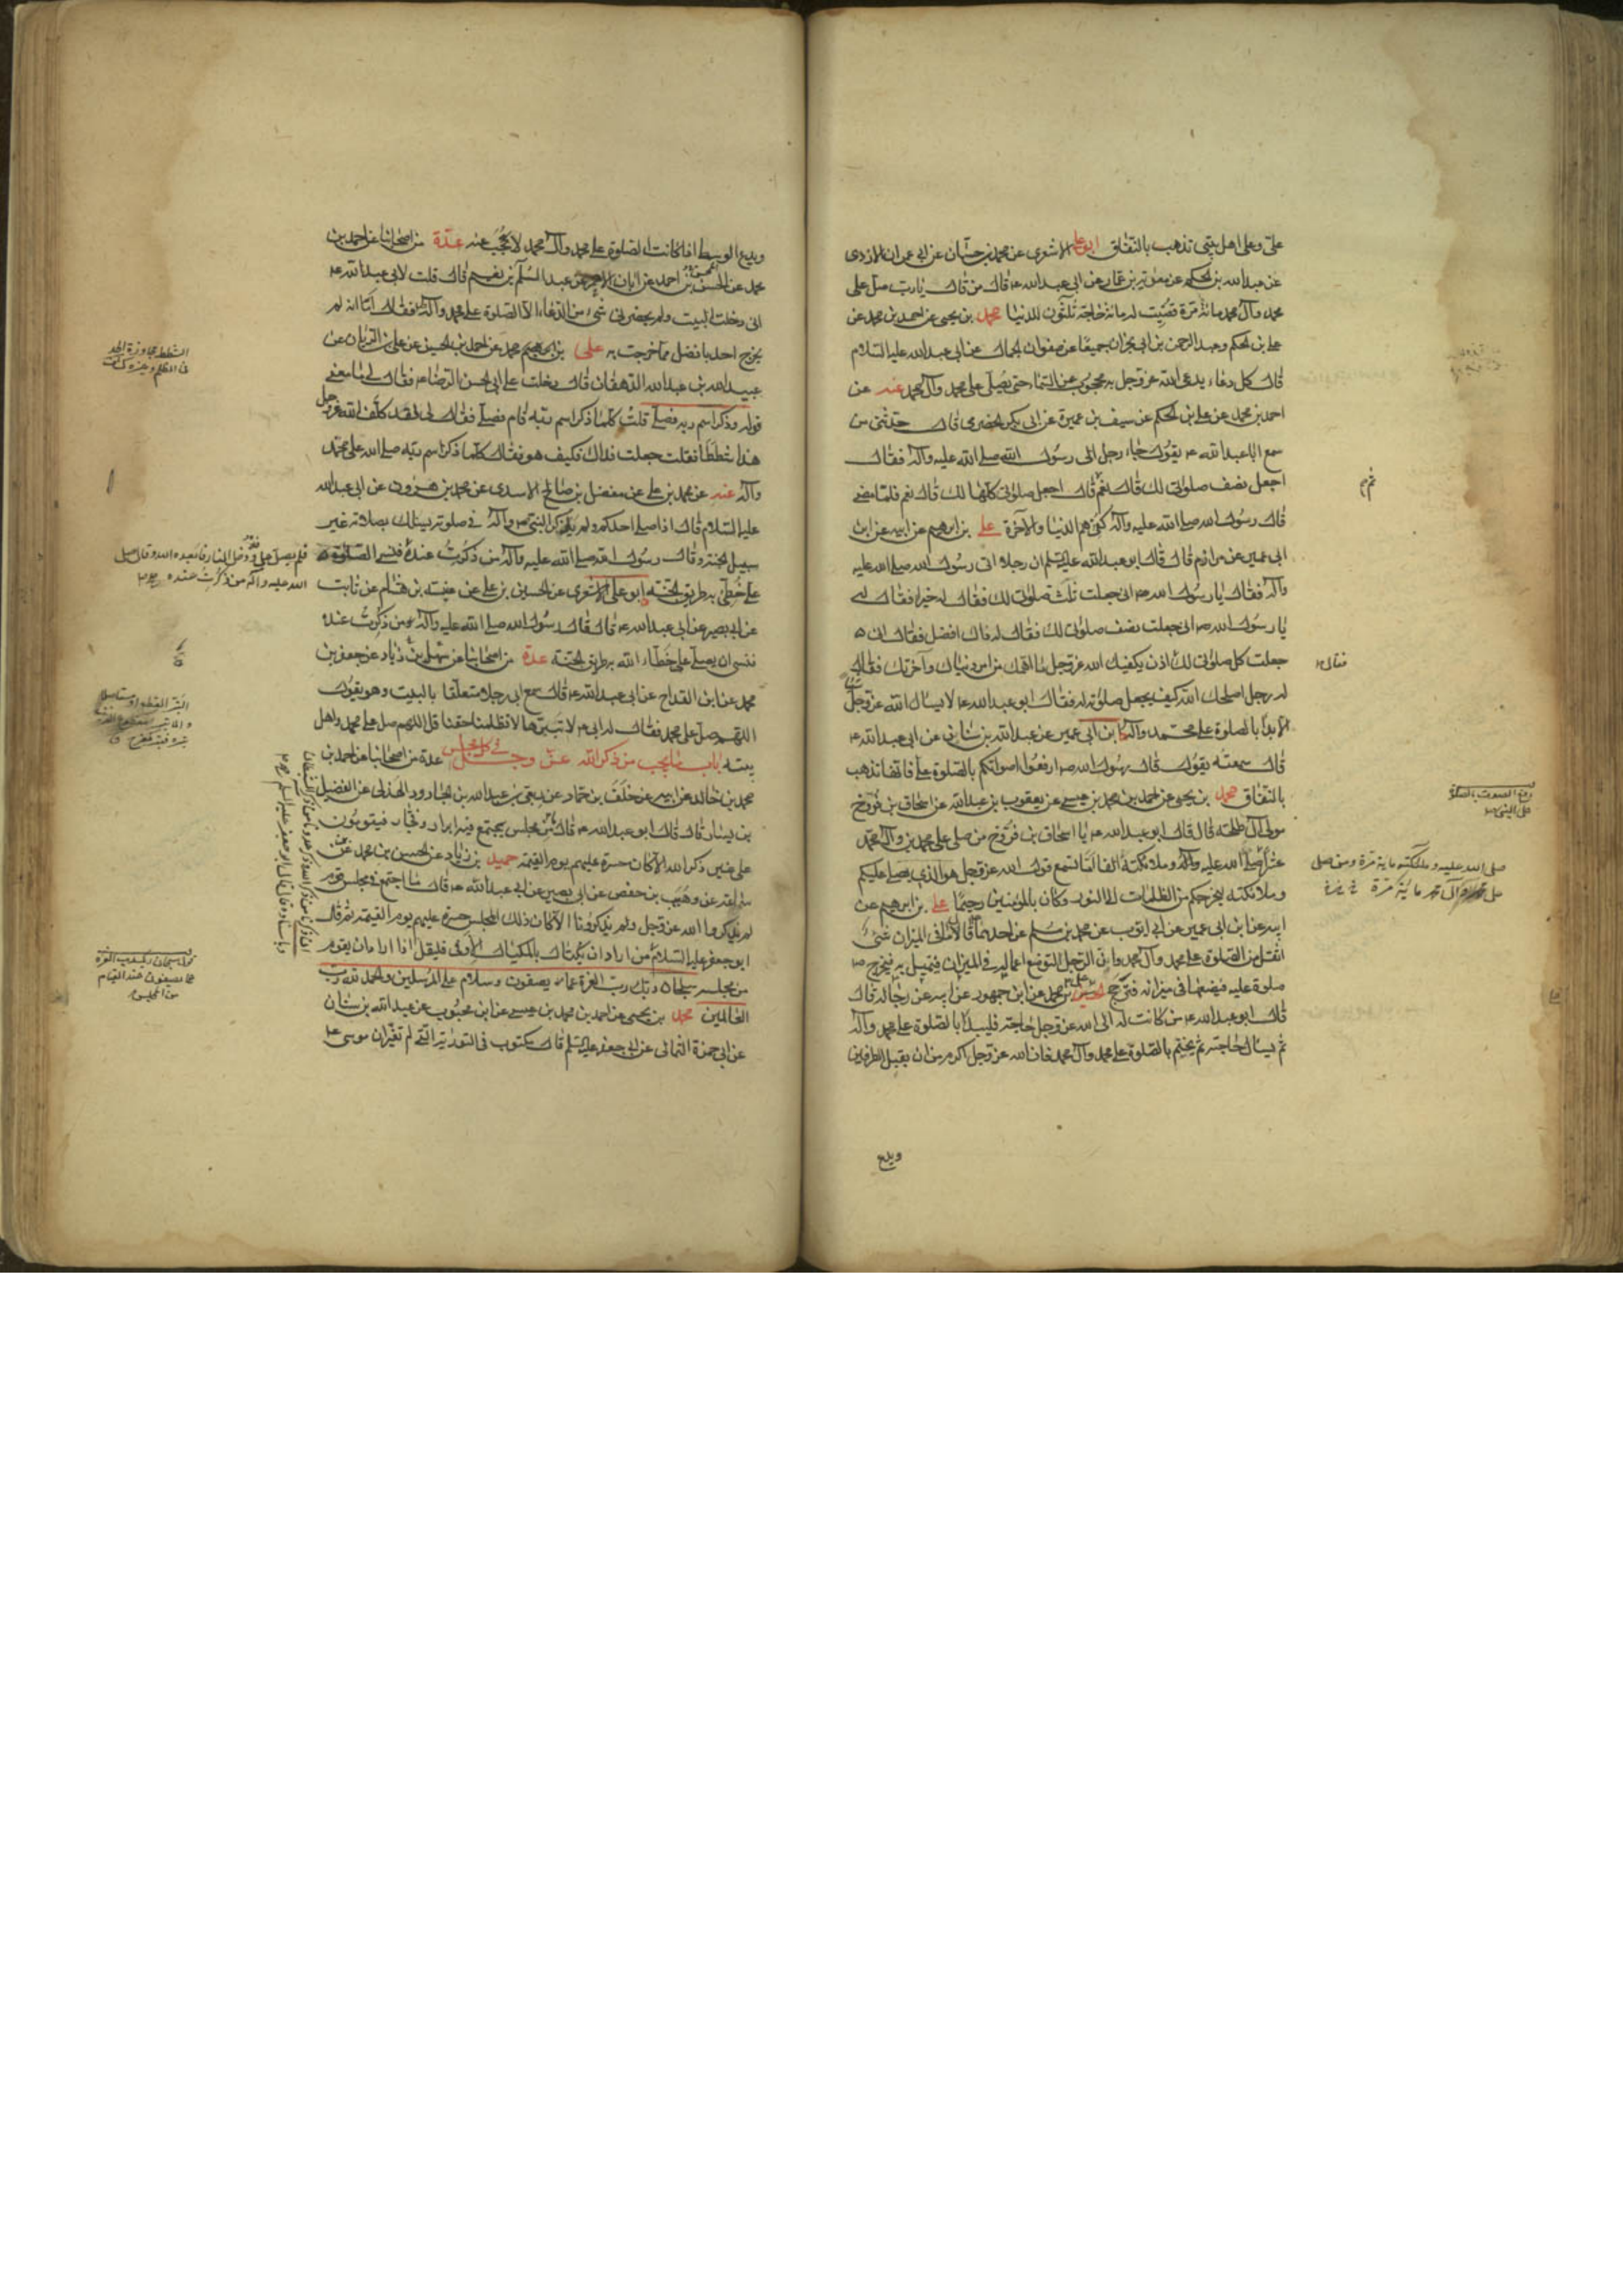 علي وعلى اهل بيتي تذهب بالنفاق ابو علي الاشعري عن محمد بن حسان عن ابي عمران الازدي
عن عبدالله بن الحكم عن معوية بن عمار عن ابي عبدالله ع قال من قال يا رب صل على
محمد وآل محمد مائة مرة قضيت له مائة حاجة ثلثون للدنيا محمد بن يحيى عن احمد بن محمد عن
علي بن الحكم وعبد الرحمن بن ابي نجران جميعا عن صفوان الجمال عن ابي عبدالله عليه السلام
قال كل دعاء يدعى الله عز وجل به محجوب عن السماء حتى يصلى على محمد وآل محمد عنه عن
احمد بن محمد عن علي بن الحكم عن سيف بن عميرة عن ابي بكر الحضرمي قال حدثني من
سمع ابا عبدالله ع يقول جاء رجل الى رسول الله صلى الله عليه وآله فقال
اجعل نصف صلواتي لك قال نعم قال اجعل صلواتي كلها لك قال نعم فلما مضى
قال رسول الله صلى الله عليه وآله كفي هم الدنيا والآخرة علي بن ابرهيم عن ابيه عن ابن
ابي عمير عن مرازم قال قال ابو عبدالله عليه السلم ان رجلا اتى رسول الله صلى الله عليه
وآله فقال يا رسول الله ص اني جعلت ثلث صلواتي لك فقال له خيرا فقال له
يا رسول الله ص اني جعلت نصف صلواتي لك فقال له ذاك افضل فقال اني
جعلت كل صلواتي لك اذن يكفيك الله عز وجل ما اهمك من امر دنياك وآخرتك فقال
له رجل اصلحك الله كيف يجعل صلوته له فقال ابو عبدالله ع لا يسال الله عز وجل
الا بدأ بالصلوة على محمد وآله ابن ابي عمير عن عبدالله بن سنان عن ابي عبدالله ع
قال سمعته يقول قال رسول الله ص ارفعوا اصواتكم بالصلوة علي فانها تذهب
بالنفاق محمد بن يحيى عن احمد بن محمد بن عيسى عن يعقوب بن عبدالله عن اسحاق بن فروخ
مولى آل طلحة قال قال ابو عبدالله ع يا اسحاق بن فروخ من صلى على محمد وآل محمد
عشرا صلى الله عليه وملائكته الفا اما تسمع قول الله عز وجل هو الذي يصلي عليكم
وملائكته ليخرجكم من الظلمات الى النور وكان بالمؤمنين رحيما علي بن ابرهيم عن
ابيه عن ابن ابي عمير عن ابي ايوب عن محمد بن مسلم عن احدهما قال ما في الميزان شئ
اثقل من الصلوة على محمد وآل محمد وان الرجل لتوضع اعماله في الميزان فتميل به فيخرج ص
صلوة عليه فيضعها في ميزانه فترجح الحسين بن محمد عن ابن جمهور عن ابيه عن رجاله قال
قال ابو عبدالله ع من كانت له الى الله عز وجل حاجة فليبدا بالصلوة على محمد وآله
ثم يسال حاجته ثم يختم بالصلوة على محمد وآل محمد فان الله عز وجل اكرم من ان يقبل الطرفين
ويدع
رفع الصوت بالصلوة
على النبي ص
صلى الله عليه وملائكته ماية مرة ومن صلى
على محمد وآل محمد مائة مرة
ويدع الوسط اذا كانت الصلوة على محمد وآل محمد لا تحجب عنه عدة من اصحابنا عن احمد بن
محمد عن احمد عن ابان عن عبد السلام بن نعيم قال قلت لابي عبدالله ع
اني دخلت البيت ولم يحضرني شئ من الدعاء الا الصلوة على محمد وآله فقال اما انه لم
يخرج احد بافضل مما خرجت به علي بن محمد عن احمد بن الحسين عن علي بن الريان عن
عبيد الله بن عبدالله الدهقان قال دخلت على ابي الحسن الرضا ع فقال لي ما معنى
قوله وذكر اسم ربه فصلى قلت كلما ذكر اسم ربه قام فصلى فقال لي لقد كلف الله عز وجل
هذا شططا فقلت جعلت فداك فكيف هو فقال كلما ذكر اسم ربه صلى الله على محمد
وآله عنه عن محمد بن علي عن مفضل بن صالح الاسدي عن محمد بن هرون عن ابي عبدالله
عليه السلام قال اذا صلى احدكم ولم يذكر النبي وآله في صلوته يسلك بصلاته غير
سبيل الجنة وقال رسول الله صلى الله عليه وآله من ذكرت عنده فنسي الصلوة
علي خطئ به طريق الجنة ابو علي الاشعري عن الحسين بن علي عن عبيس بن هشام عن ثابت
عن ابي بصير عن ابي عبدالله ع قال قال رسول الله صلى الله عليه وآله من ذكرت عنده
فنسي ان يصلي علي خطأ الله به طريق الجنة عدة من اصحابنا عن سهل بن زياد عن جعفر بن
محمد عن ابن القداح عن ابي عبدالله ع قال سمع ابي رجلا متعلقا بالبيت وهو يقول
اللهم صل على محمد فقال له ابي ع لا تبترها لا تظلمنا حقنا قل اللهم صل على محمد واهل
بيته باب ما يجب من ذكر الله عز وجل في كل مجلس عدة من اصحابنا عن احمد بن
محمد بن خالد عن ابيه عن خلف بن حماد عن ربعي بن عبدالله بن الجارود الهذلي عن الفضيل
بن يسار قال قال ابو عبدالله ع ما من مجلس يجتمع فيه ابرار وفجار فيقومون
على غير ذكر الله الا كان حسرة عليهم يوم القيمة حميد بن زياد عن الحسن بن محمد عن
سماعة عن وهيب بن حفص عن ابي بصير عن ابي عبدالله ع قال ما اجتمع في مجلس قوم
لم يذكروا الله عز وجل ولم يذكرونا الا كان ذلك المجلس حسرة عليهم يوم القيمة ثم قال
ابو جعفر عليه السلام من اراد ان يكتال بالمكيال الاوفى فليقل اذا اراد ان يقوم
من مجلسه سبحان ربك رب العزة عما يصفون وسلام على المرسلين والحمد لله رب
العالمين محمد بن يحيى عن احمد بن محمد بن عيسى عن ابن محبوب عن عبدالله بن سنان
عن ابي حمزة الثمالي عن ابي جعفر عليه السلم قال مكتوب في التورية التي لم تغير ان موسى ع
الشطط مجاوزة الحد
فلم يصل علي فدخل النار فابعده الله وقال صلى
الله عليه وآله من ذكرت عنده
قول سبحان ربك رب العزة
عما يصفون عند القيام
من المجلس